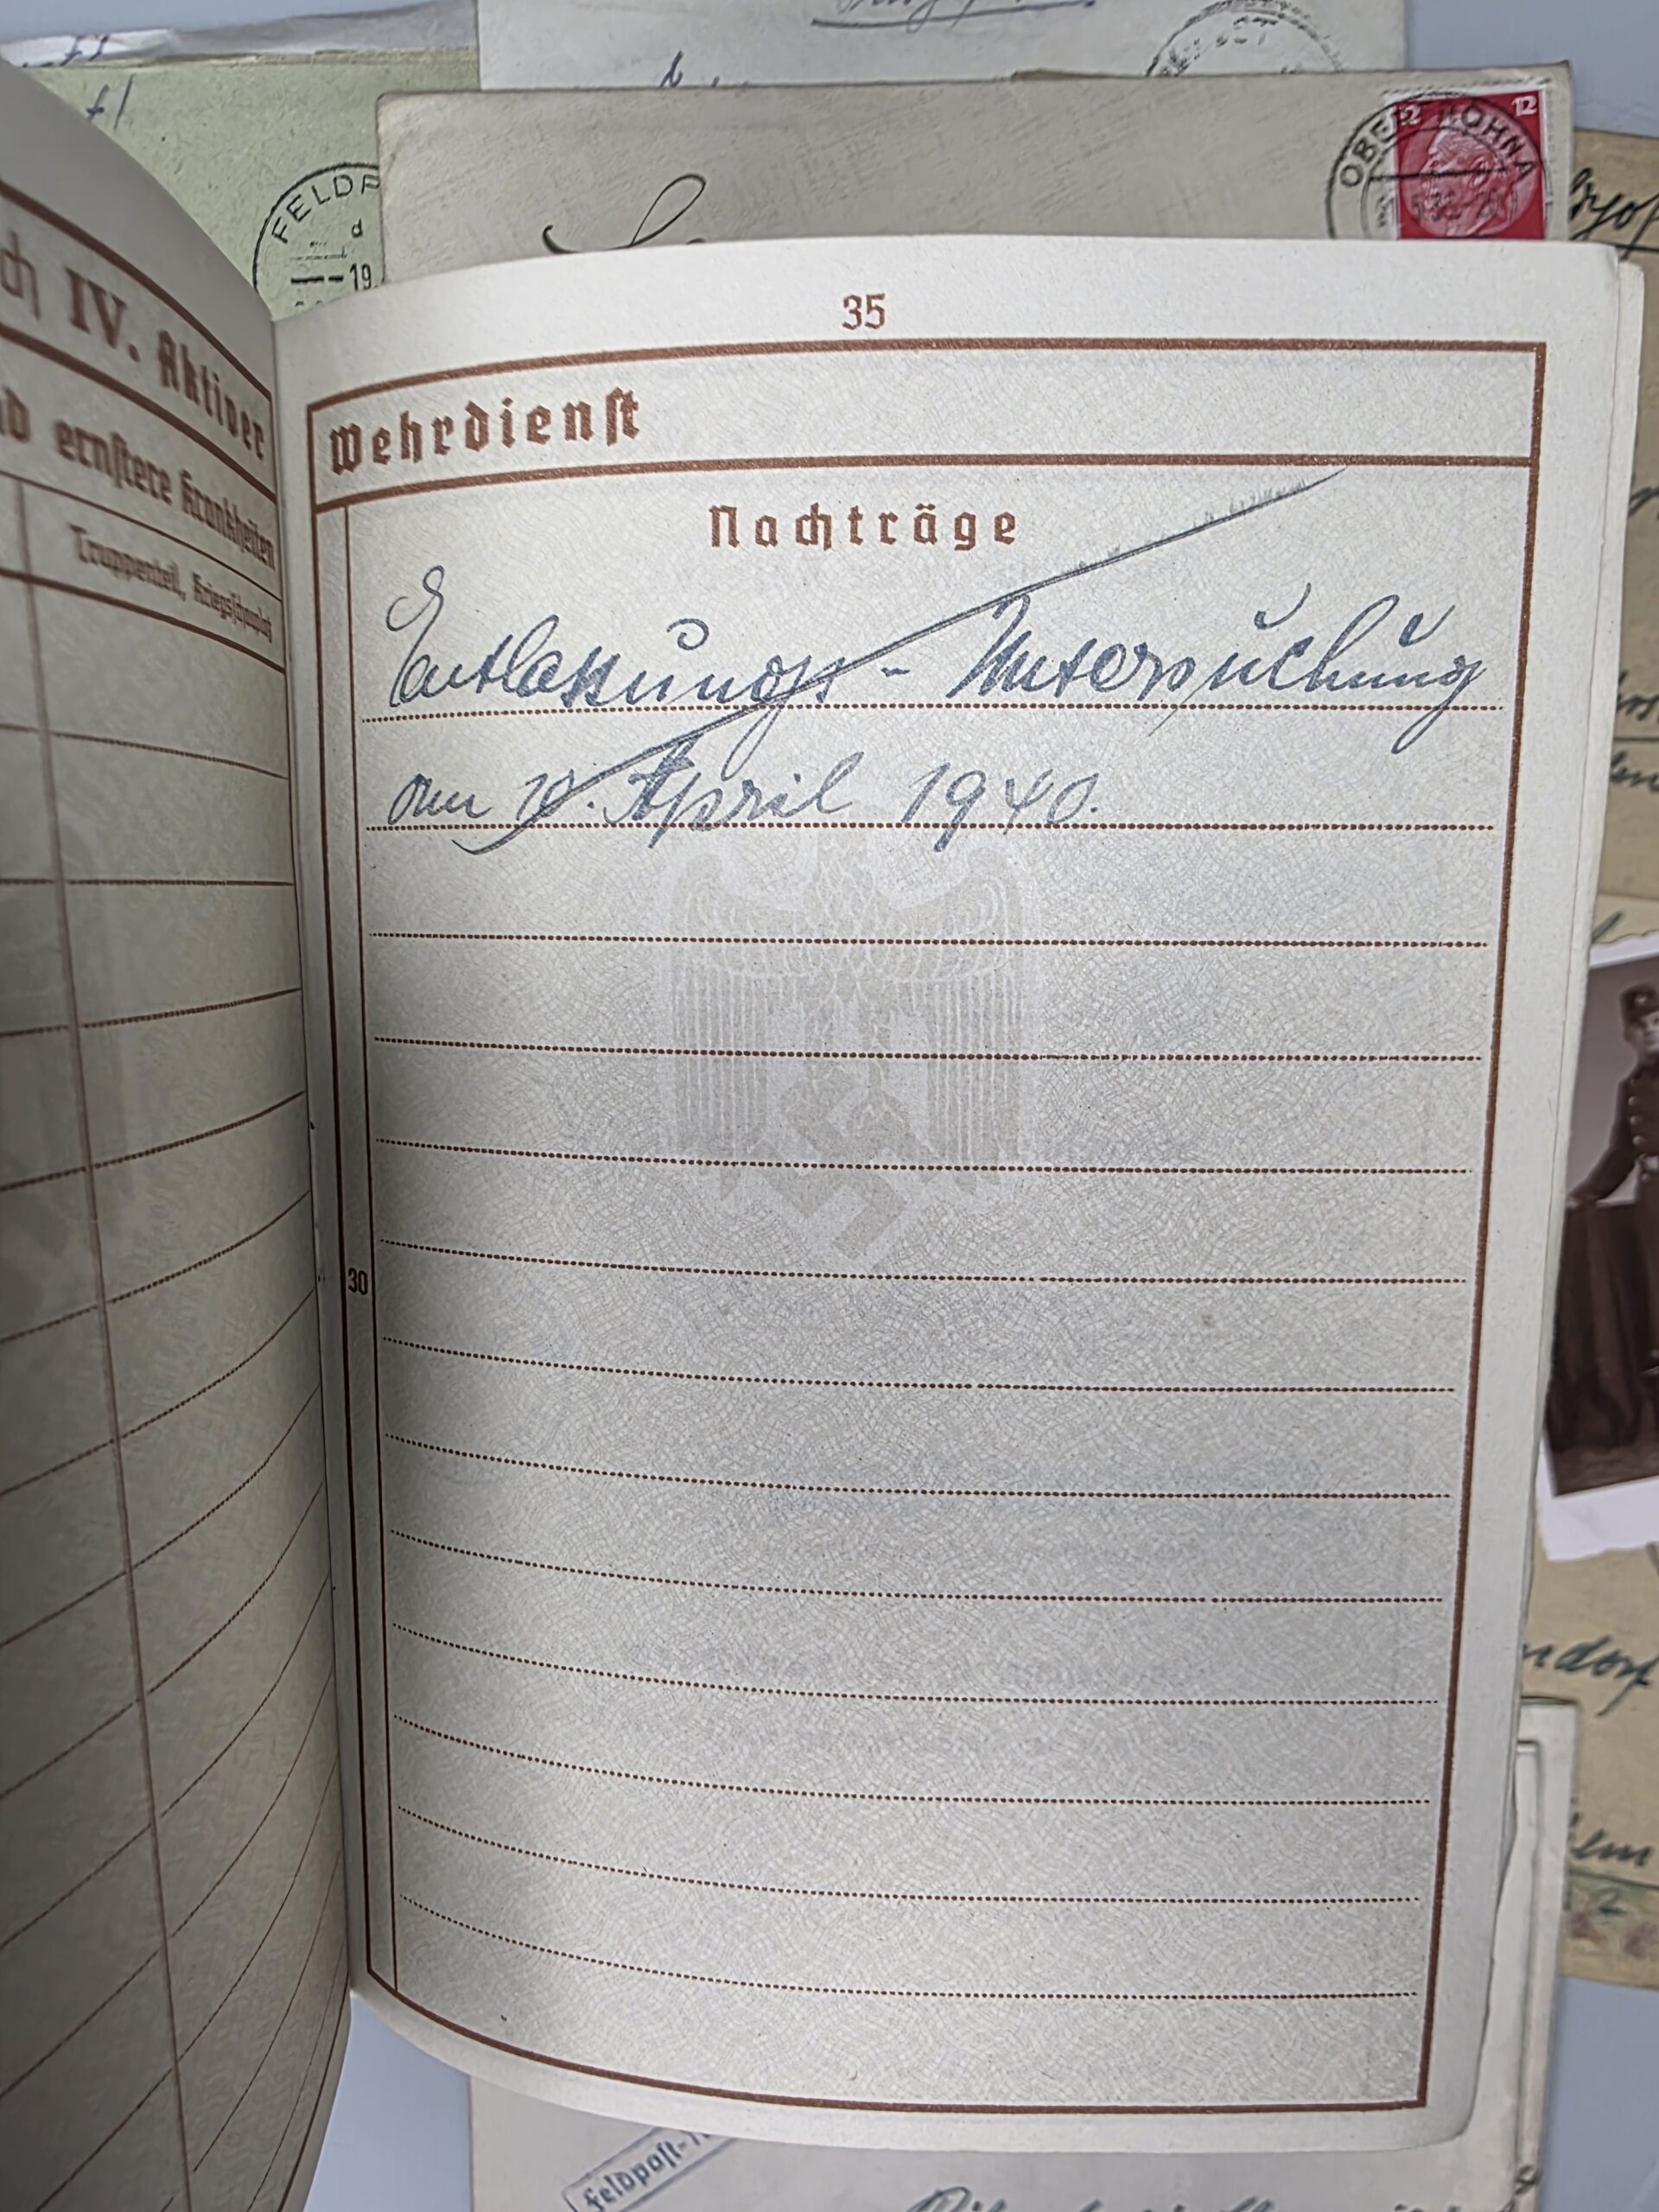 FELDP
d
19
12 12
OBER HOHNA
ch IV. Aktiver
nd ernstere Krankheiten
Truppenteil, Kriegsschauplatz
35
Wehrdienst
Nachträge
Entlassungs - Untersuchung
am 10. April 1940.
30
ndorf
em
Feldpost-